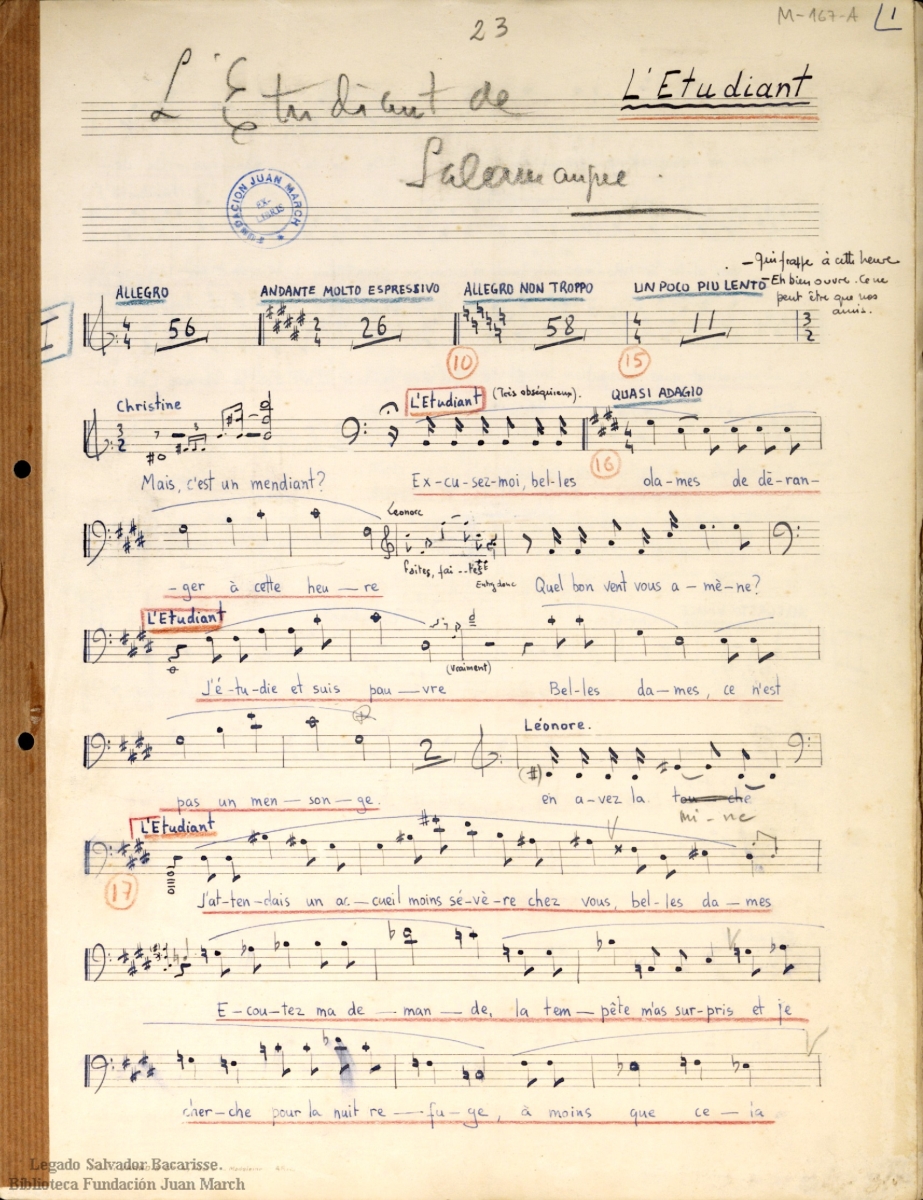 23
M-167-A
1
L'Etudiant de
Salamanque.
L'Etudiant
FUNDACION JUAN MARCH
EX-LIBRIS
- Qui frappe à cette heure
- Eh bien ouvre. Ce ne
peut être que nos
amis.
ALLEGRO ANDANTE MOLTO ESPRESSIVO ALLEGRO NON TROPPO UN POCO PIU LENTO
I 4 4 56 2 4 26 58 4 4 11 3 2
10 15
Christine L'Etudiant (Très obséquieux). QUASI ADAGIO
3 2 4 4
16
Mais, c'est un mendiant? Ex-cu-sez-moi, bel-les da-mes de dé-ran-
Leonore
faites, fai--tes
Entrez donc
-ger à cette heu-re Quel bon vent vous a-mè-ne?
L'Etudiant
(vraiment)
J'é-tu-die et suis pau-vre Bel-les da-mes, ce n'est
2 Léonore.
(#)
pas un men-son-ge. en a-vez la tou-che
mi-ne
L'Etudiant
17
J'at-ten-dais un ac-cueil moins sé-vè-re chez vous, bel-les da-mes
E-cou-tez ma de-man-de, la tem-pête m'as sur-pris et je
cher-che pour la nuit re-fu-ge, à moins que ce-la
Legado Salvador Bacarisse.
Biblioteca Fundación Juan March